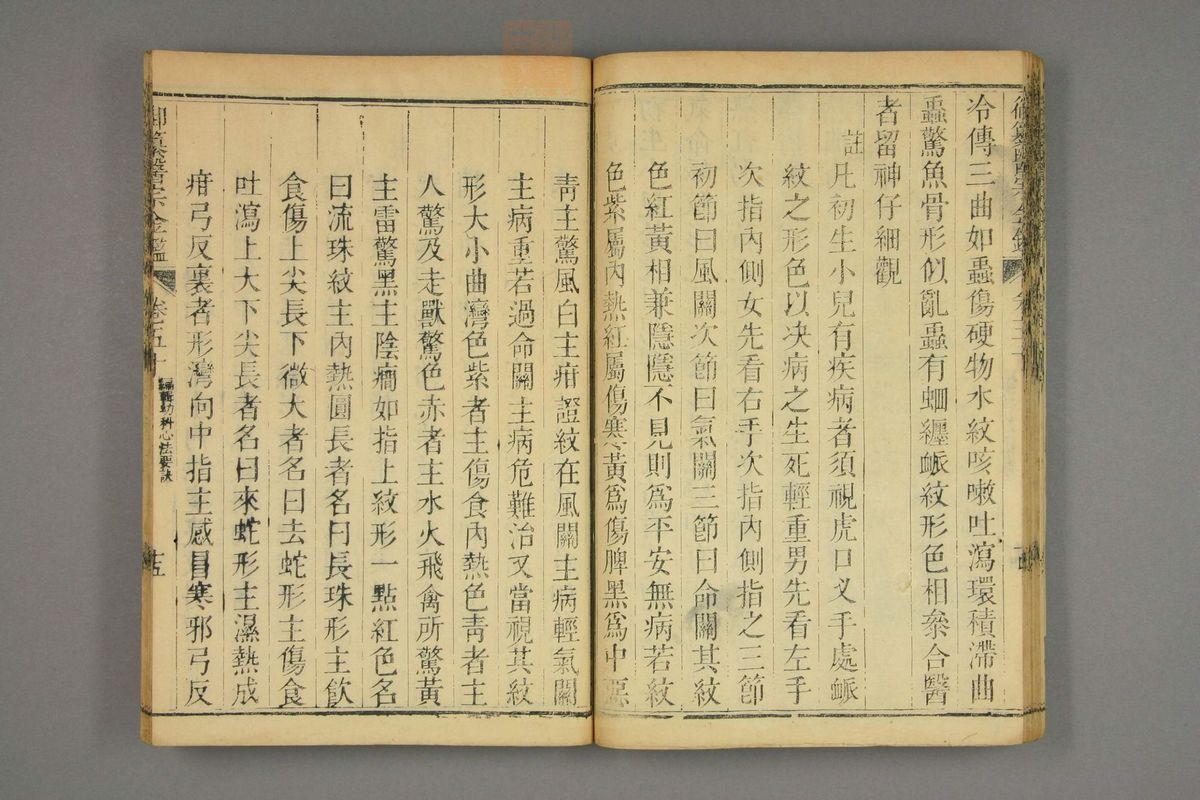 冷傳三曲如蟲傷硬物水紋咳嗽吐瀉環積滯曲
蟲驚魚骨形似亂蟲有蛔纏䘑紋形色相叅合醫
者留神仔細觀
註 凡初生小兒有疾病者須視虎口乂手處䘑
紋之形色以决病之生死輕重男先看左手
次指內側女先看右手次指內側指之三節
初節曰風關次節曰氣關三節曰命關其紋
色紅黃相兼隱隱不見則爲平安無病若紋
色紫屬內熱紅屬傷寒黃爲傷脾黑爲中惡
靑主驚風白主疳證紋在風關主病輕氣關
主病重若過命關主病危難治又當視其紋
形大小曲灣色紫者主傷食內熱色靑者主
人驚及走獸驚色赤者主水火飛禽所驚黃
主雷驚黑主陰癎如指上紋形一點紅色名
曰流珠紋主內熱圓長者名曰長珠形主飮
食傷上尖長下微大者名曰去蛇形主傷食
吐瀉上大下尖長者名曰來蛇形主濕熱成
疳弓反裏者形灣向中指主感冒寒邪弓反
御纂醫宗金鑑 卷五十 編輯幼科心法要訣 十五